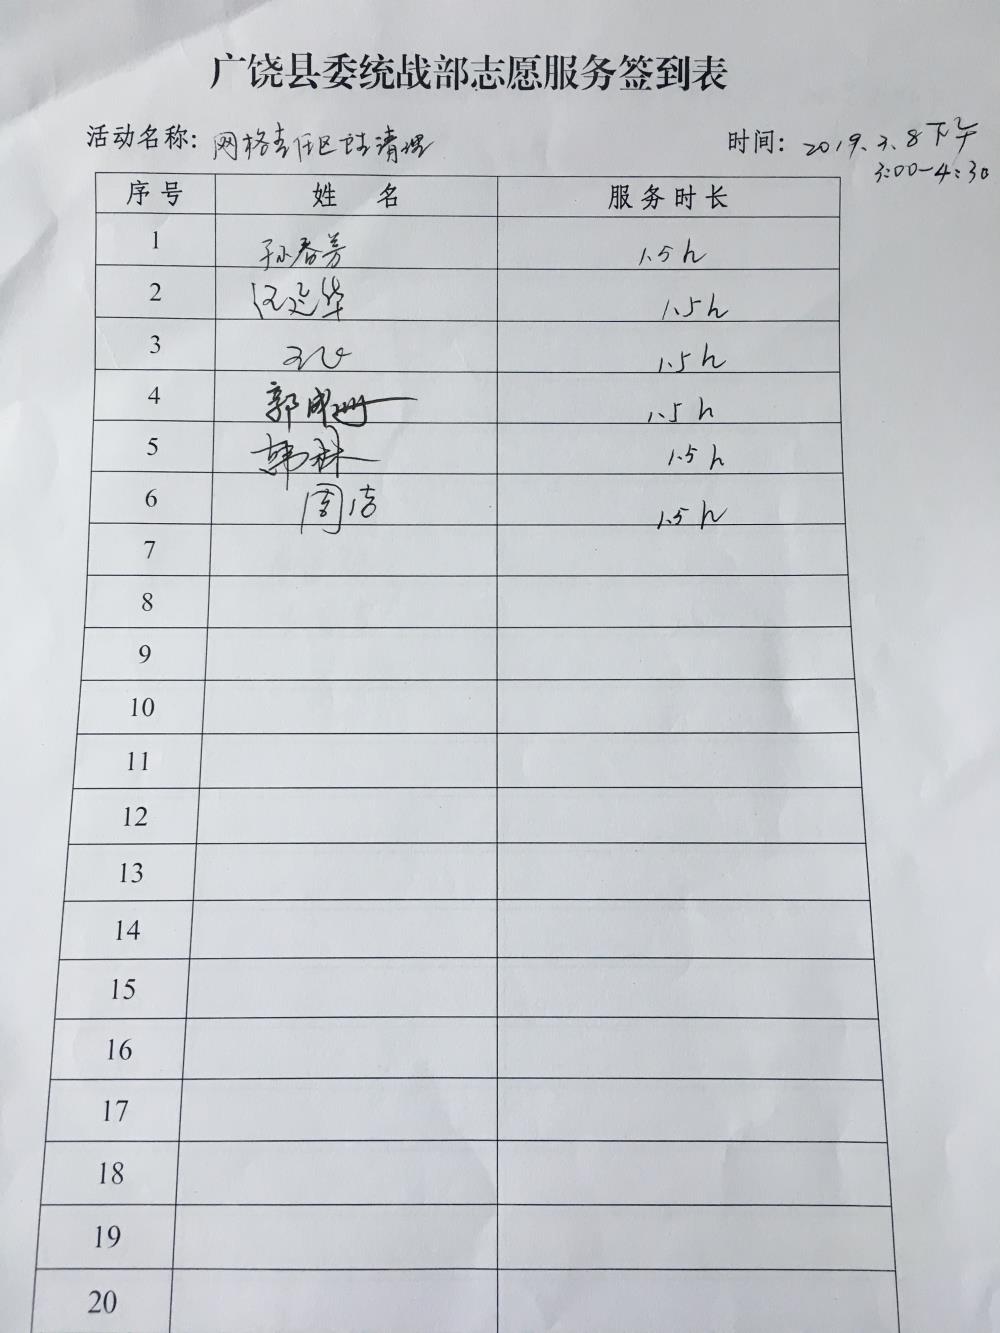 广饶县委统战部志愿服务签到表
活动名称：网格责任区清理
时间：2019.3.8下午
3:00-4:30
序号 姓名 服务时长
1 孙春芳 1.5h
2 延华 1.5h
3 1.5h
4 郭成 1.5h
5 韩林 1.5h
6 周洁 1.5h
7
8
9
10
11
12
13
14
15
16
17
18
19
20